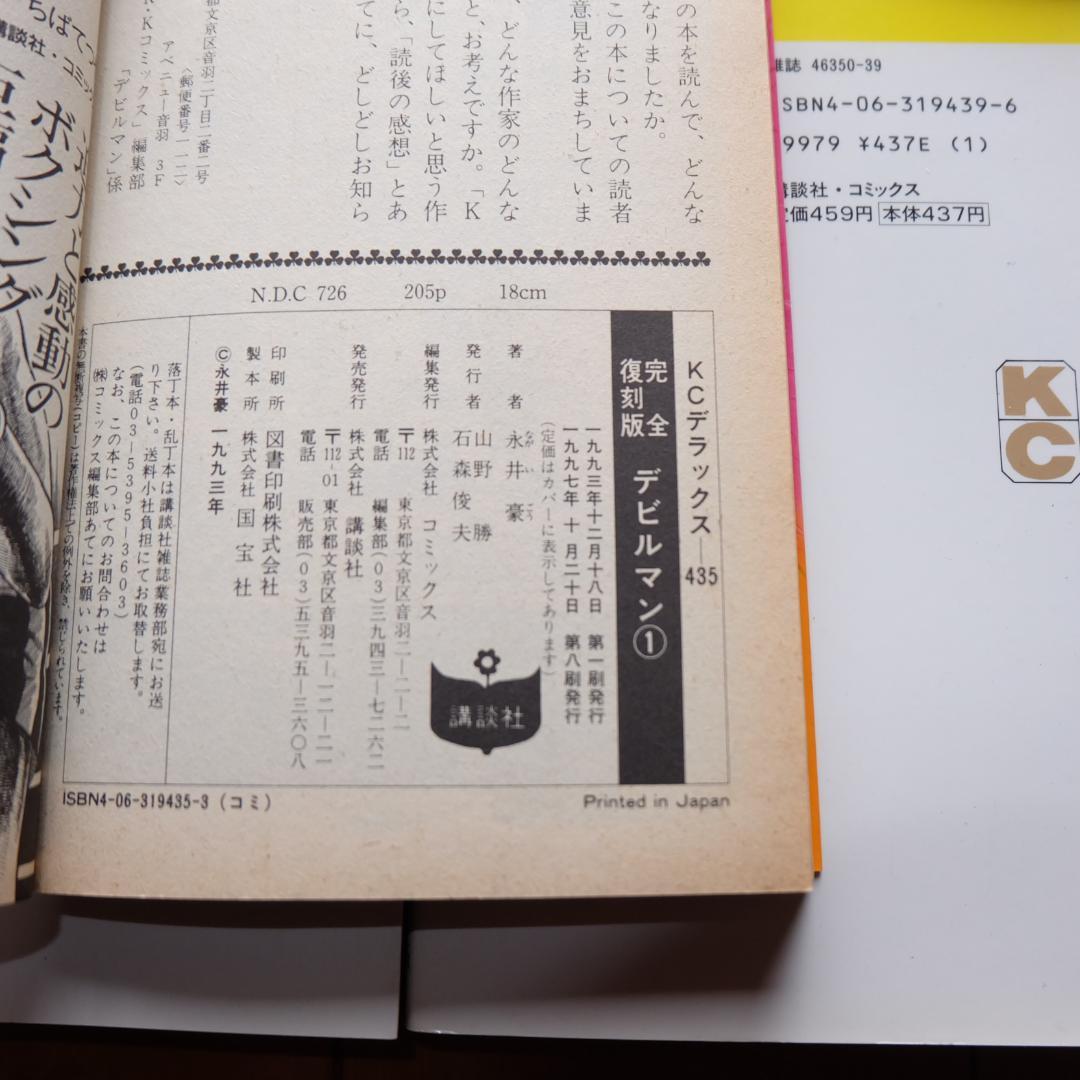 の本を読んで、どんな
なりましたか。
この本についての読者
意見をおまちしていま
、どんな作家のどんな
にしてほしいと思う作
と、お考えですか。「K
ら、「読後の感想」とあ
てに、どしどしお知ら
都文京区音羽二丁目二番二号
〈郵便番号一一二〉
アベニュー音羽 3F
K・Kコミックス」編集部
『デビルマン』係
N.D.C 726 205p 18cm
KCデラックス—435
完全復刻版 デビルマン①
一九九三年十二月十八日 第一刷発行
一九九七年 十 月二十日 第八刷発行
(定価はカバーに表示してあります)
著者 永井豪
ながいごう
発行者 山野勝
石森俊夫
編集発行 株式会社 コミックス
〒112 東京都文京区音羽二—二—二
電話 編集部(03)三九四三—七二六二
発売発行 株式会社 講談社
〒112-01 東京都文京区音羽二—一二—二一
電話 販売部(03)五三九五—三六〇八
印刷所 図書印刷株式会社
製本所 株式会社 国宝社
©永井豪 一九九三年
落丁本・乱丁本は講談社雑誌業務部宛にお送
り下さい。送料小社負担にてお取替します。
(電話03—5395—3603)
なお、この本についてのお問合わせは
㈱コミックス編集部あてにお願いいたします。
本書の無断複写(コピー)は著作権法上での例外を除き、禁じられています。
講談社
ISBN4-06-319435-3 (コミ)
Printed in Japan
ちばてつ
講談社・コミッ
迫力と感動の
ボクシング
雑誌 46350-39
ISBN4-06-319439-6
9979 ¥437E (1)
講談社・コミックス
定価459円 本体437円
KC